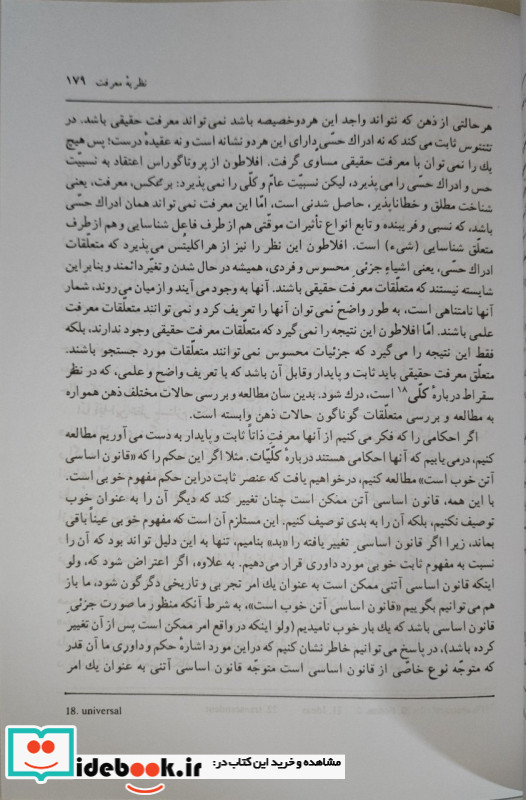 نظریهٔ معرفت ۱۷۹
هر حالتی از ذهن که نتواند واجد این هر دو خصیصه باشد نمی‌تواند معرفت حقیقی باشد. در
تئتتوس ثابت می‌کند که نه ادراک حسّی دارای این هر دو نشانه است و نه عقیدهٔ درست؛ پس هیچ
یک را نمی‌توان با معرفت حقیقی مساوی گرفت. افلاطون از پروتاگوراس اعتقاد به نسبیّت
حس و ادراک حسّی را می‌پذیرد، لیکن نسبیّت عامّ و کلّی را نمی‌پذیرد: برعکس، معرفت، یعنی
شناخت مطلق و خطاناپذیر، حاصل شدنی است، امّا این معرفت نمی‌تواند همان ادراک حسّی
باشد، که نسبی و فریبنده و تابع انواع تأثیرات موقّتی هم از طرف فاعل شناسایی و هم از طرف
متعلّق شناسایی (شیء) است. افلاطون این نظر را نیز از هراکلیتُس می‌پذیرد که متعلّقات
ادراک حسّی، یعنی اشیاءِ جزئیِ محسوس و فردی، همیشه در حال شدن و تغیّر دائمند و بنابراین
شایسته نیستند که متعلّقات معرفت حقیقی باشند. آنها به وجود می‌آیند و از میان می‌روند، شمار
آنها نامتناهی است، به طور واضح نمی‌توان آنها را تعریف کرد و نمی‌توانند متعلّقات معرفت
علمی باشند. امّا افلاطون این نتیجه را نمی‌گیرد که متعلّقات معرفت حقیقی وجود ندارند، بلکه
فقط این نتیجه را می‌گیرد که جزئیات محسوس نمی‌توانند متعلّقات مورد جستجو باشند.
متعلّق معرفت حقیقی باید ثابت و پایدار و قابل آن باشد که با تعریف واضح و علمی، که در نظر
سقراط دربارهٔ کلّی۱۸ است، درک شود. بدین سان مطالعه و بررسی حالات مختلف ذهن همواره
به مطالعه و بررسی متعلّقات گوناگون حالات ذهن وابسته است.
اگر احکامی را که فکر می‌کنیم از آنها معرفت ذاتاً ثابت و پایدار به دست می‌آوریم مطالعه
کنیم، درمی‌یابیم که آنها احکامی هستند دربارهٔ کلّیّات. مثلا اگر این حکم را که «قانون اساسی
آتن خوب است» مطالعه کنیم، درخواهیم یافت که عنصر ثابت در این حکم مفهوم خوبی است.
با این همه، قانون اساسی آتن ممکن است چنان تغییر کند که دیگر آن را به عنوان خوب
توصیف نکنیم، بلکه آن را به بدی توصیف کنیم. این مستلزم آن است که مفهوم خوبی عیناً باقی
بماند، زیرا اگر قانون اساسیِ تغییر یافته را «بد» بنامیم، تنها به این دلیل تواند بود که آن را
نسبت به مفهوم ثابت خوبی مورد داوری قرار می‌دهیم. به علاوه، اگر اعتراض شود که، ولو
اینکه قانون اساسی آتنی ممکن است به عنوان یک امر تجربی و تاریخی دگرگون شود، ما باز
هم می‌توانیم بگوییم «قانون اساسی آتن خوب است»، به شرط آنکه منظور ما صورت جزئیِ
قانون اساسی باشد که یک بار خوب نامیدیم (ولو اینکه در واقع امر ممکن است پس از آن تغییر
کرده باشد)، در پاسخ می‌توانیم خاطرنشان کنیم که در این مورد اشارهٔ حکم و داوری ما آن قدر
که متوجّه نوع خاصّی از قانون اساسی است متوجّه قانون اساسی آتنی به عنوان یک امر
18. universal
مشاهده و خرید این کتاب در:
idebook.ir